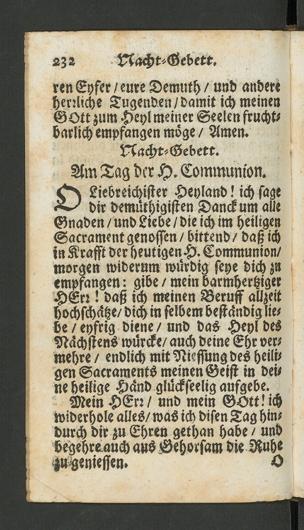 232 Nacht-Gebett.
ren Eyfer / eure Demuth / und andere
herrliche Tugenden / damit ich meinen
GOtt zum Heyl meiner Seelen frucht-
barlich empfangen möge / Amen.
Nacht-Gebett.
Am Tag der H. Communion.
O Liebreichister Heyland! ich sage
dir demüthigisten Danck um alle
Gnaden / und Liebe / die ich im heiligen
Sacrament genossen / bittend / daß ich
in Krafft der heutigen H. Communion /
morgen widerum würdig seye dich zu
empfangen: gibe / mein barmhertziger
HErz! daß ich meinen Beruff allzeit
hochschätze / dich in selbem beständig lie-
be / eyfrig diene / und das Heyl des
Nächstens würcke / auch deine Ehr ver-
mehre / endlich mit Niessung des heili-
gen Sacraments meinen Geist in dei-
ne heilige Händ glückseelig aufgebe.
Mein HErz / und mein GOtt! ich
widerhole alles / was ich disen Tag hin-
durch dir zu Ehren gethan habe / und
begehre auch aus Gehorsam die Ruhe
zu geniessen. O